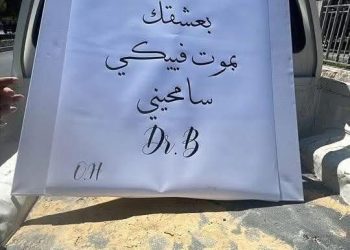 بعشقك
بموت فييكي
سامحيني
Dr.B
O.H